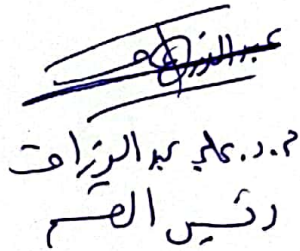 عبد الرزاق
م.د. علي عبد الرزاق
رئيس القسم